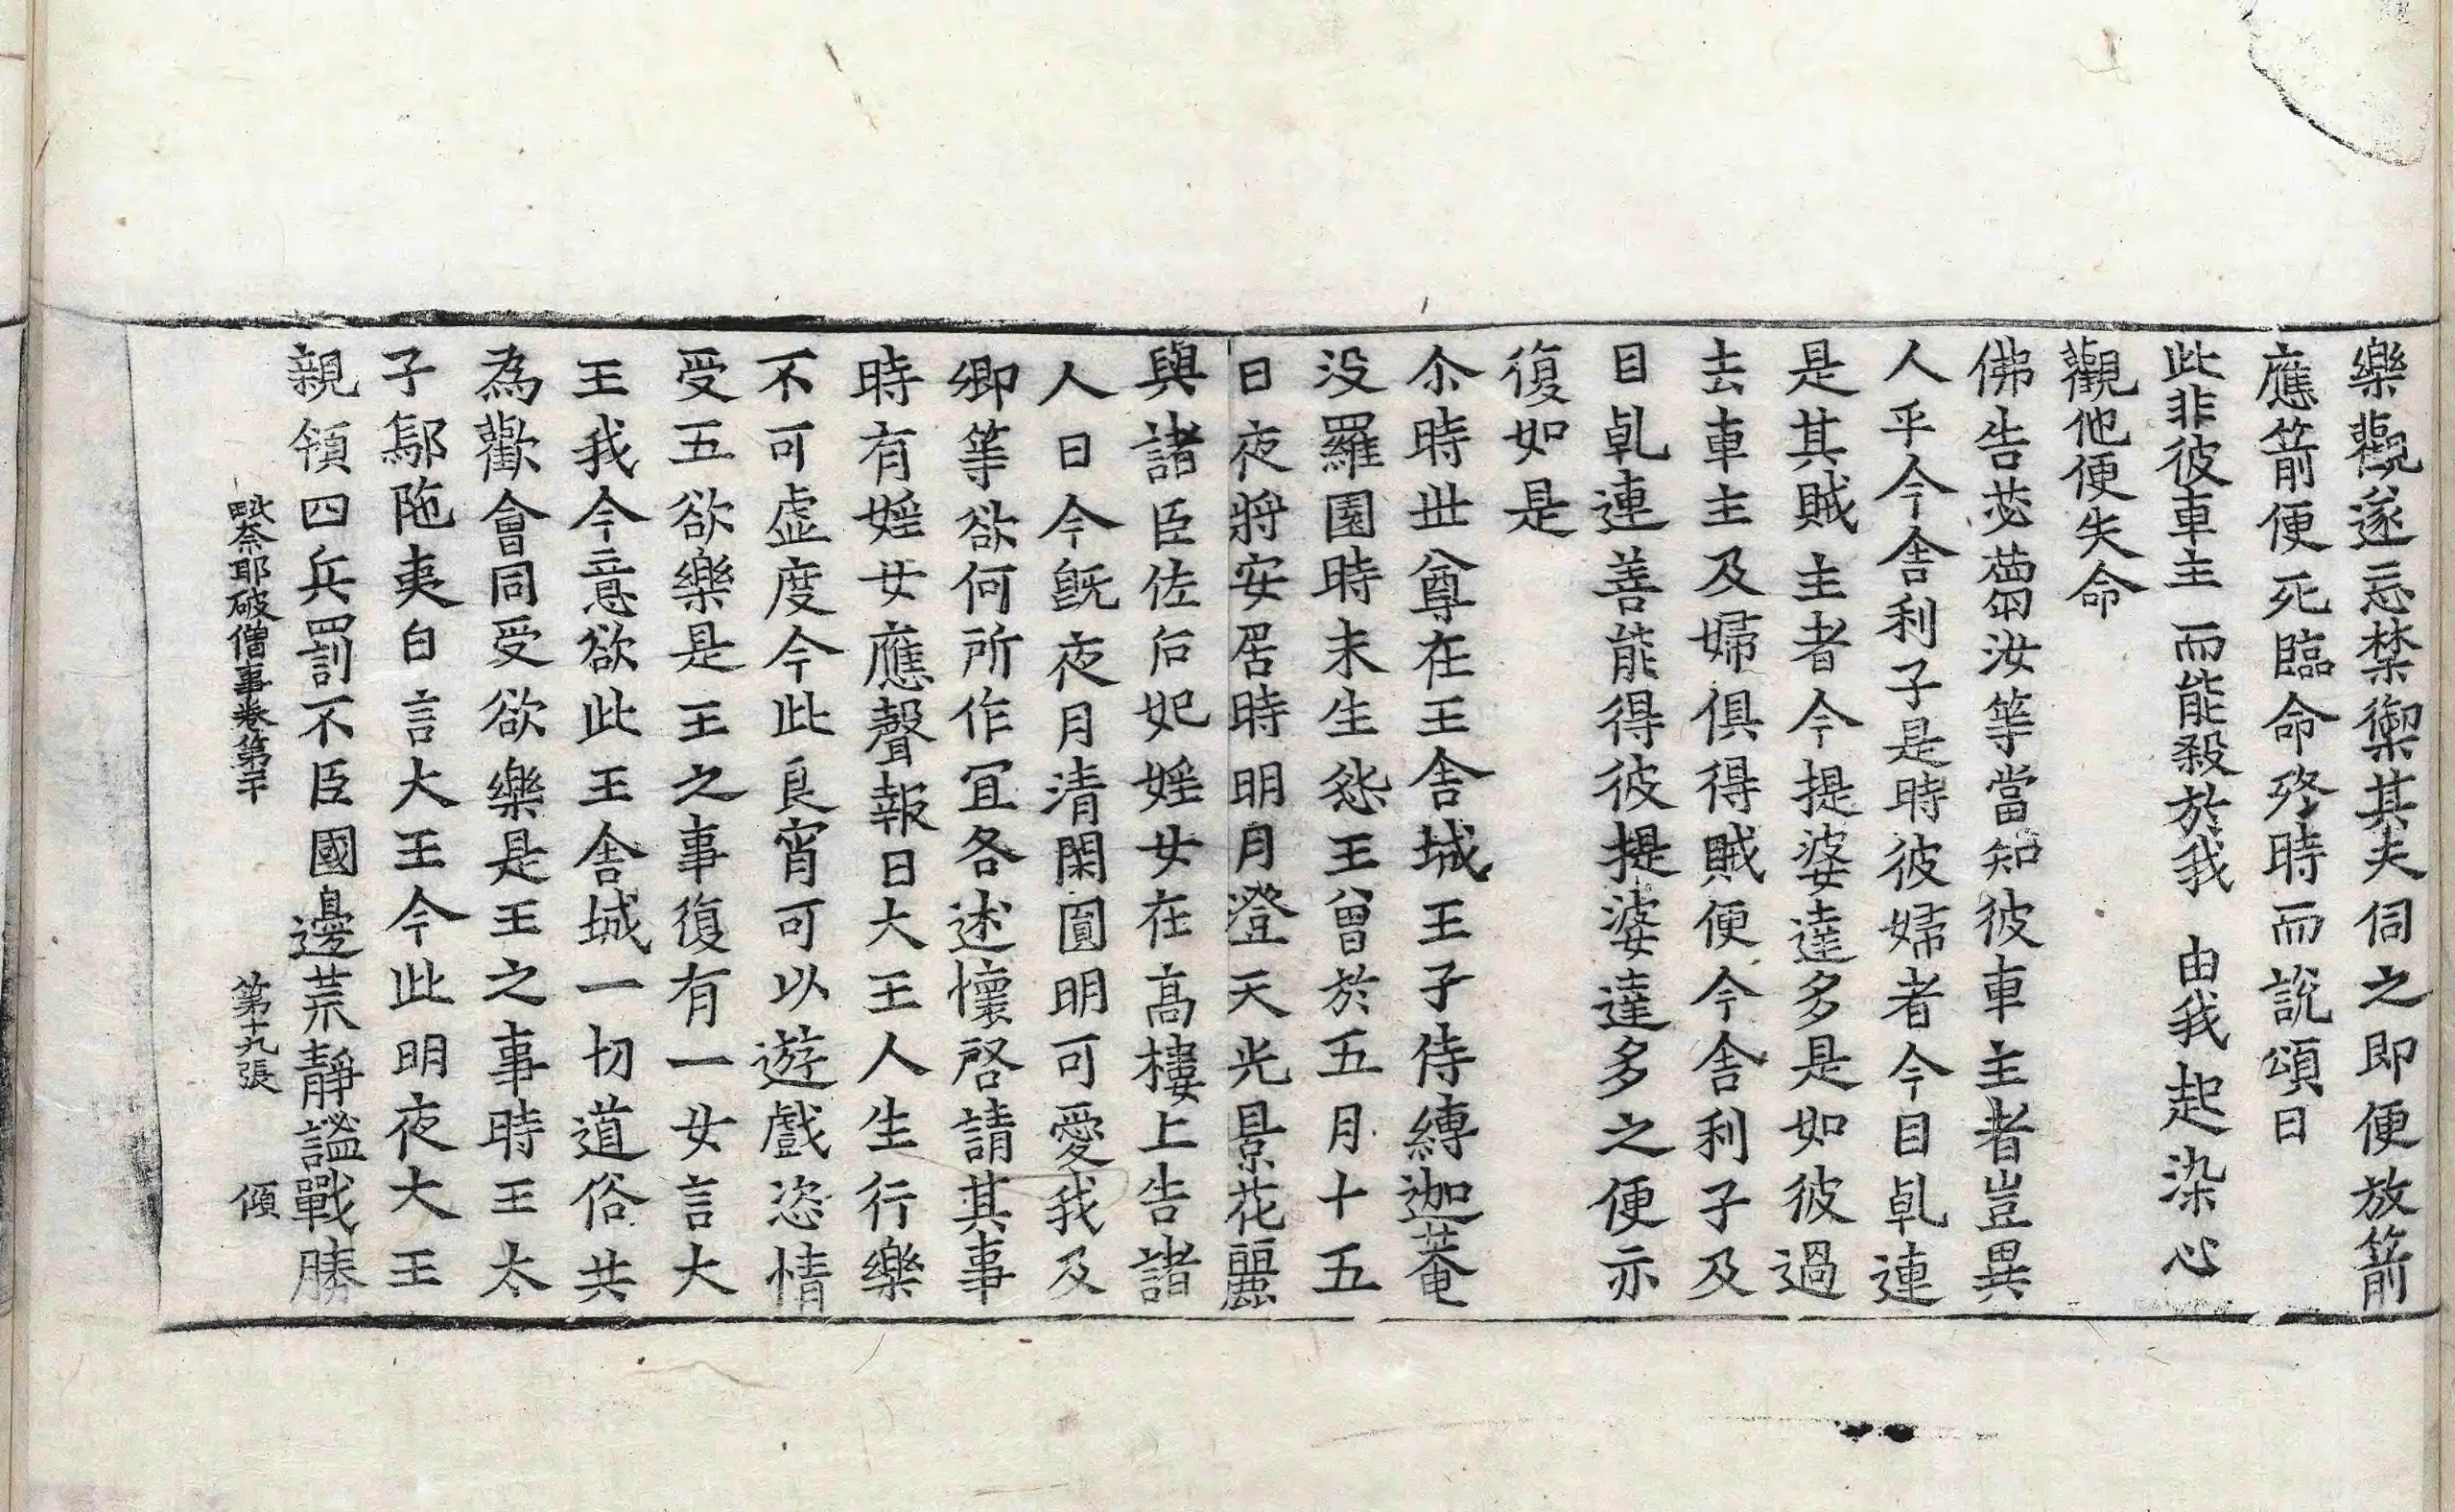 樂觀遂忘禁禦其夫伺之即便放箭
應箭便死臨命終時而說頌曰
此非彼車主　而能殺於我　由我起染心
觀他便失命
佛告苾蒭汝等當知彼車主者豈異
人乎今舍利子是時彼婦者今目乹連
是其賊主者今提婆達多是如彼過
去車主及婦俱得賊便今舍利子及
目乹連善能得彼提婆達多之便亦
復如是
尒時世尊在王舍城王子侍縛迦菴
没羅園時未生怨王曾於五月十五
日夜將安居時明月澄天光景花麗
與諸臣佐后妃婬女在高樓上告諸
人曰今旣夜月清閑圓明可愛我及
卿等欲何所作宜各述懷啓請其事
時有婬女應聲報曰大王人生行樂
不可虛度今此良宵可以遊戲恣情
受五欲樂是王之事復有一女言大
王我今意欲此王舍城一切道俗共
為歡會同受欲樂是王之事時王太
子鄔陁夷白言大王今此明夜大王
親領四兵罰不臣國邊荒靜謐戰勝
毗奈耶破僧事卷第二十　第十九張　傾